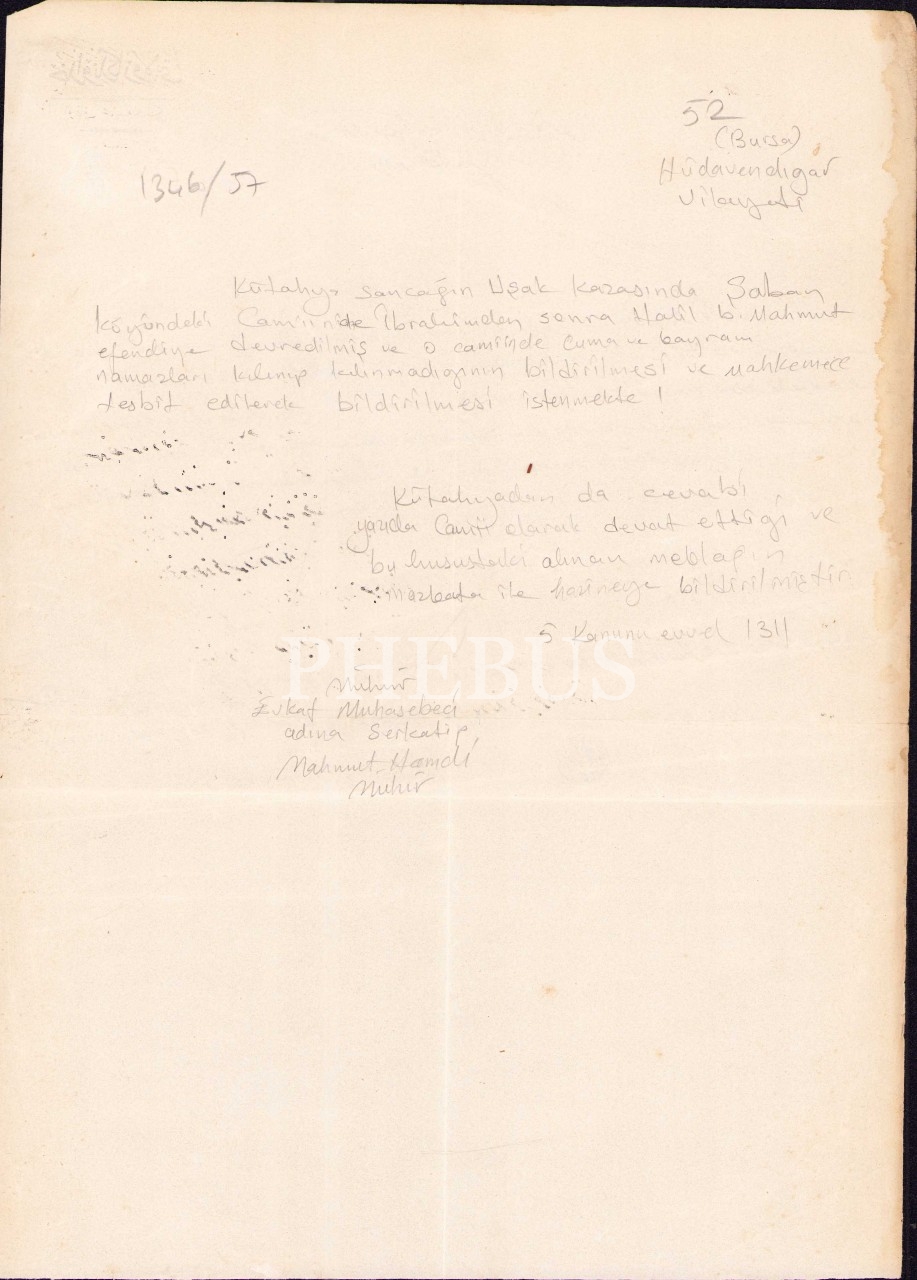 52
(Bursa)
Hüdavendigar
Vilayeti
1346/57
Kütahya sancağın Uşak kazasında Şaban
köyündeki Camiinide İbrahimden sonra Halil b. Mahmut
efendiye devredilmiş ve o camiinde Cuma ve bayram
namazları kılınıp kılınmadığının bildirilmesi ve Mahkemece
tesbit edilerek bildirilmesi istenmekte !
Kütahyadan da cevabi
yazıda Camii olarak devat ettiği ve
bu husustaki alınan meblağın
mazbata ile hazineye bildirilmiştir
5 Kanunu evvel 1311
PHEBUS
Mühür
Evkaf Muhasebeci
adına Serkatip
Mahmut Hamdi
Mühür